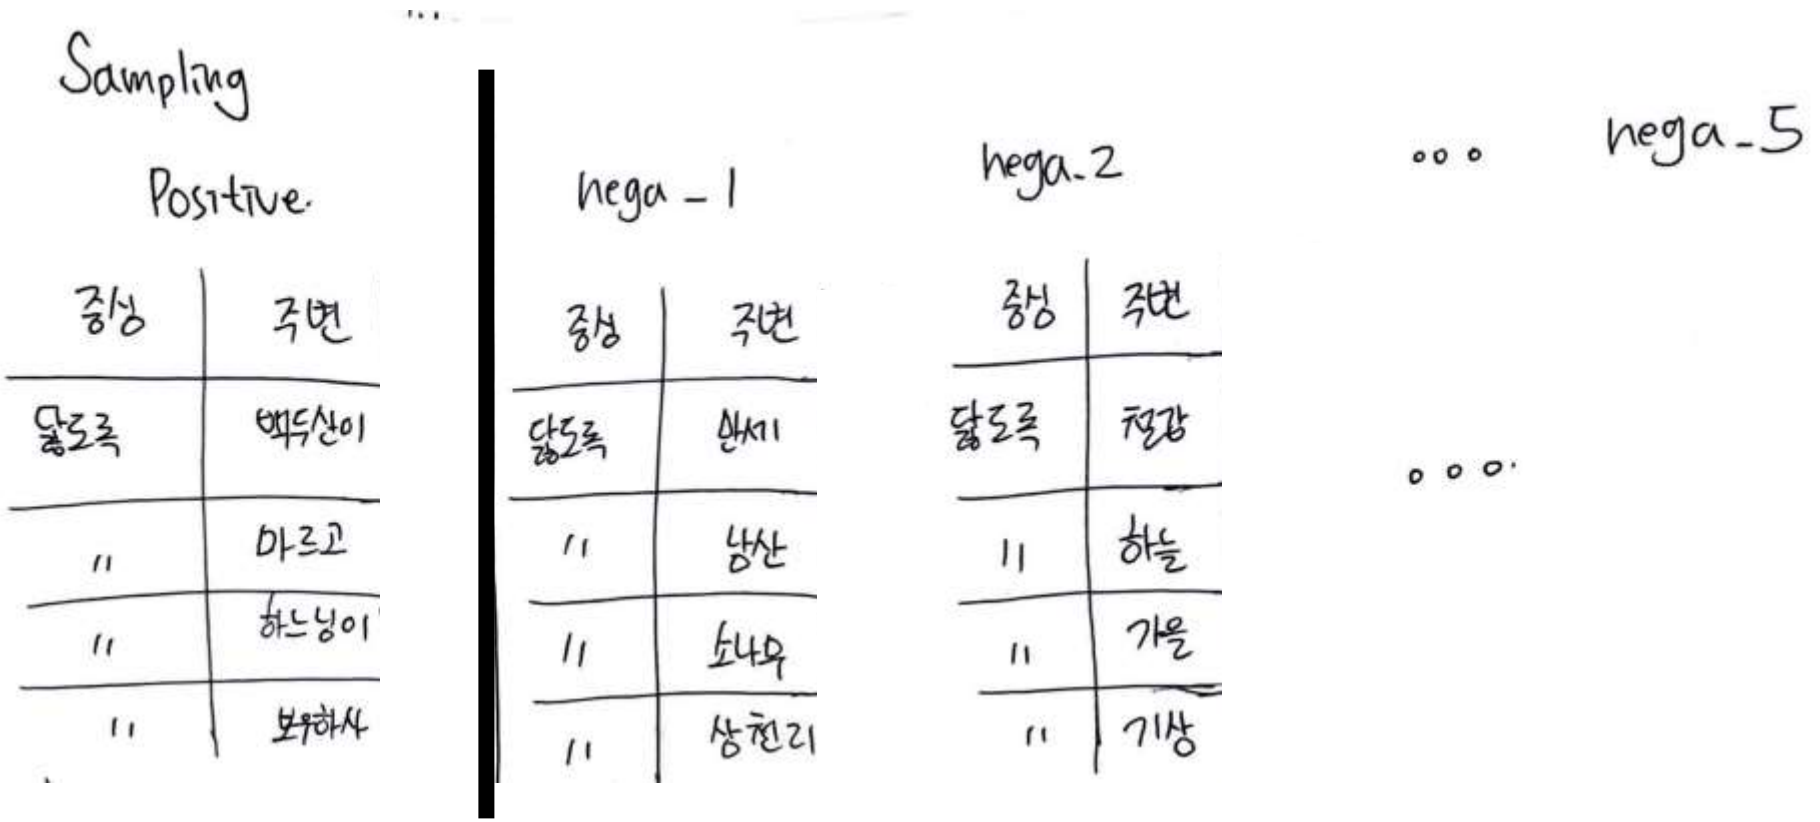 Sampling
Positive.
중심 주변
닳도록 백두산이
" 마르고
" 하느님이
" 보우하사
nega_1
중심 주변
닳도록 만세
" 남산
" 소나무
" 삼천리
nega_2
중심 주변
닳도록 철갑
" 하늘
" 가을
" 기상
...
nega_5
...